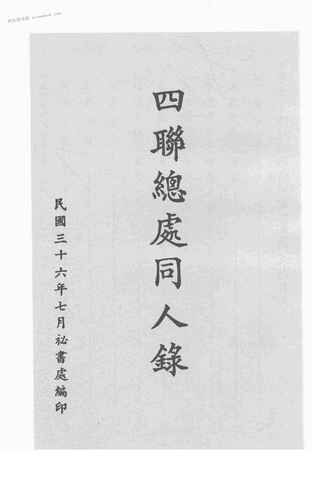 四聯總處同人錄
民國三十六年七月祕書處編印